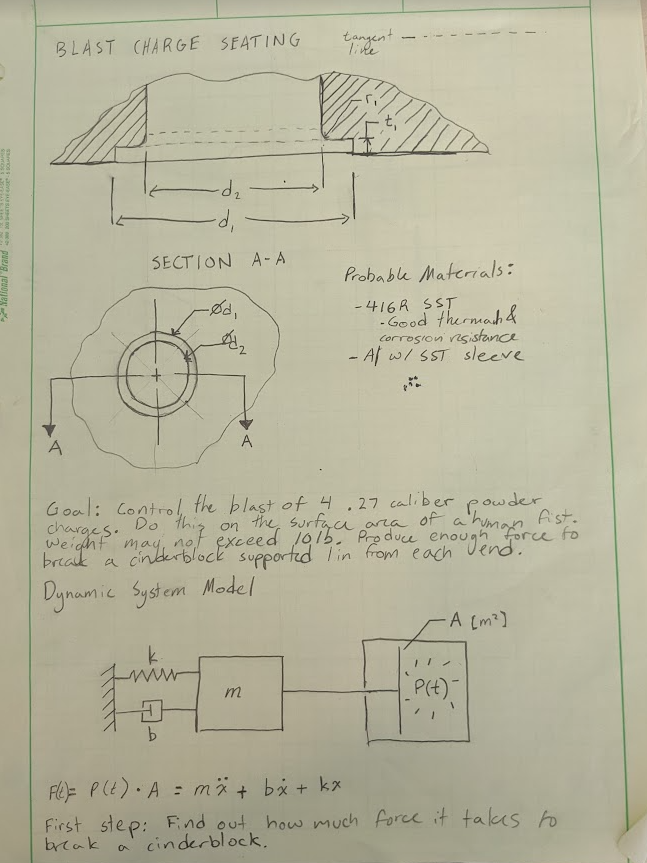 BLAST CHARGE SEATING
tangent
line
r₁
t₁
d₂
d₁
SECTION A-A
Probable Materials:
-416R SST
-Good thermal &
corrosion resistance
- Al w/ SST sleeve
Ød₁
Ød₂
A
A
National Brand
Goal: Control the blast of 4 .27 caliber powder
charges. Do this on the surface area of a human fist.
Weight may not exceed 10lb. Produce enough force to
break a cinderblock supported 1in from each end.
Dynamic System Model
A [m²]
k
m
P(t)
b
F(t)= P(t) · A = mẍ + bẋ + kx
First step: Find out how much force it takes to
break a cinderblock.